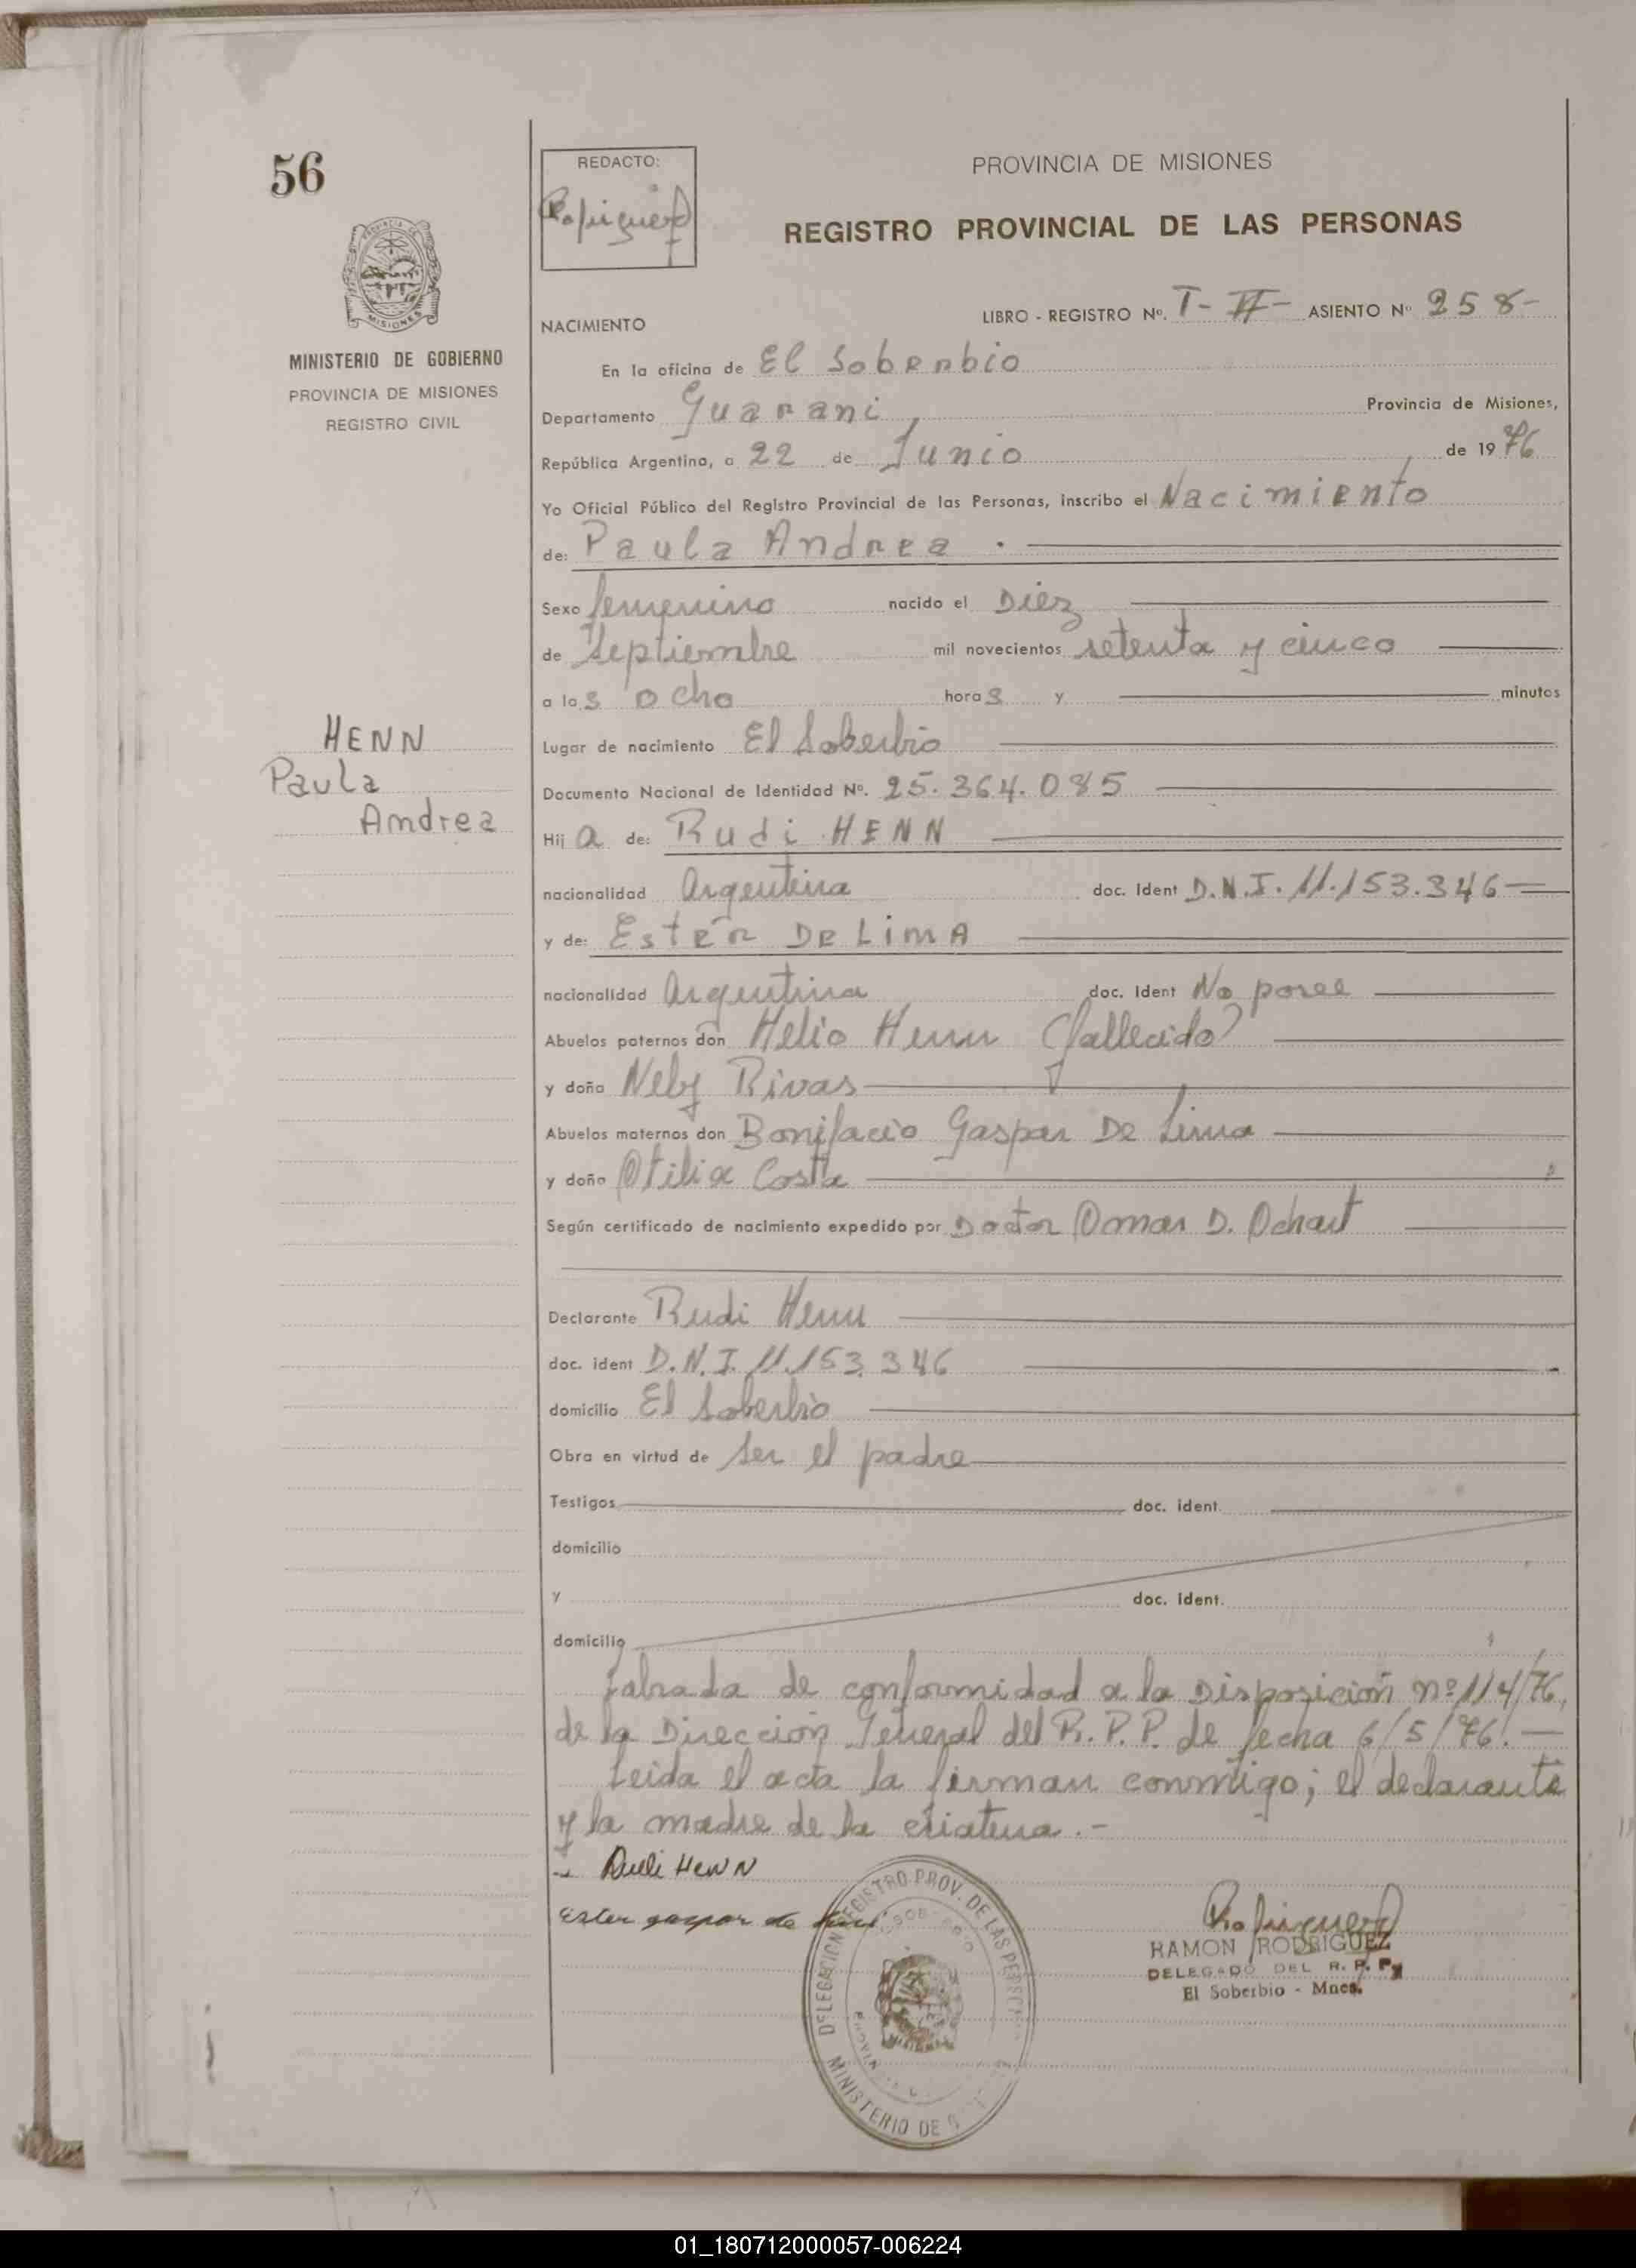 56
REDACTO:
PROVINCIA DE MISIONES
REGISTRO PROVINCIAL DE LAS PERSONAS
MISIONES
MINISTERIO DE GOBIERNO
PROVINCIA DE MISIONES
REGISTRO CIVIL
LIBRO - REGISTRO Nº. T- II- ASIENTO Nº 258-
NACIMIENTO
En la oficina de El Soberbio
Departamento Guarani Provincia de Misiones,
República Argentina, a 22 de Junio de 1976
Yo Oficial Público del Registro Provincial de las Personas, inscribo el Nacimiento
de: Paula Andrea .
Sexo femenino nacido el Diez
de Septiembre mil novecientos setenta y cinco
a las ocho horas y minutos
HENN
Paula
Andrea
Lugar de nacimiento El Soberbio
Documento Nacional de Identidad Nº. 25.364.085
Hij a de: Rudi HENN
nacionalidad Argentina doc. Ident D.N.I. 11.153.346
y de: Ester De Lima
nacionalidad Argentina doc. Ident No posee
Abuelos paternos don Helio Henn (fallecido)
y doña Nely Rivas
Abuelos maternos don Bonifacio Gaspar De Lima
y doña Otilia Costa
Según certificado de nacimiento expedido por Doctor Omar D.
Declarante Rudi Henn
doc. ident D.N.I. 11.153.346
domicilio El Soberbio
Obra en virtud de ser el padre
Testigos doc. ident.
domicilio
y doc. ident.
domicilio
Labrada de conformidad a la Disposición nº 114/76,
de la Dirección General del R.P.P. de fecha 6/5/76.
Leida el acta la firman conmigo; el declarante
y la madre de la criatura.-
Rudi HENN
Ester gaspar de
DELEGACION REGISTRO PROV. DE LAS PERSONAS
MINISTERIO DE
RAMON RODRIGUEZ
DELEGADO DEL R. P. P.
El Soberbio - Mnes.
01_180712000057-006224